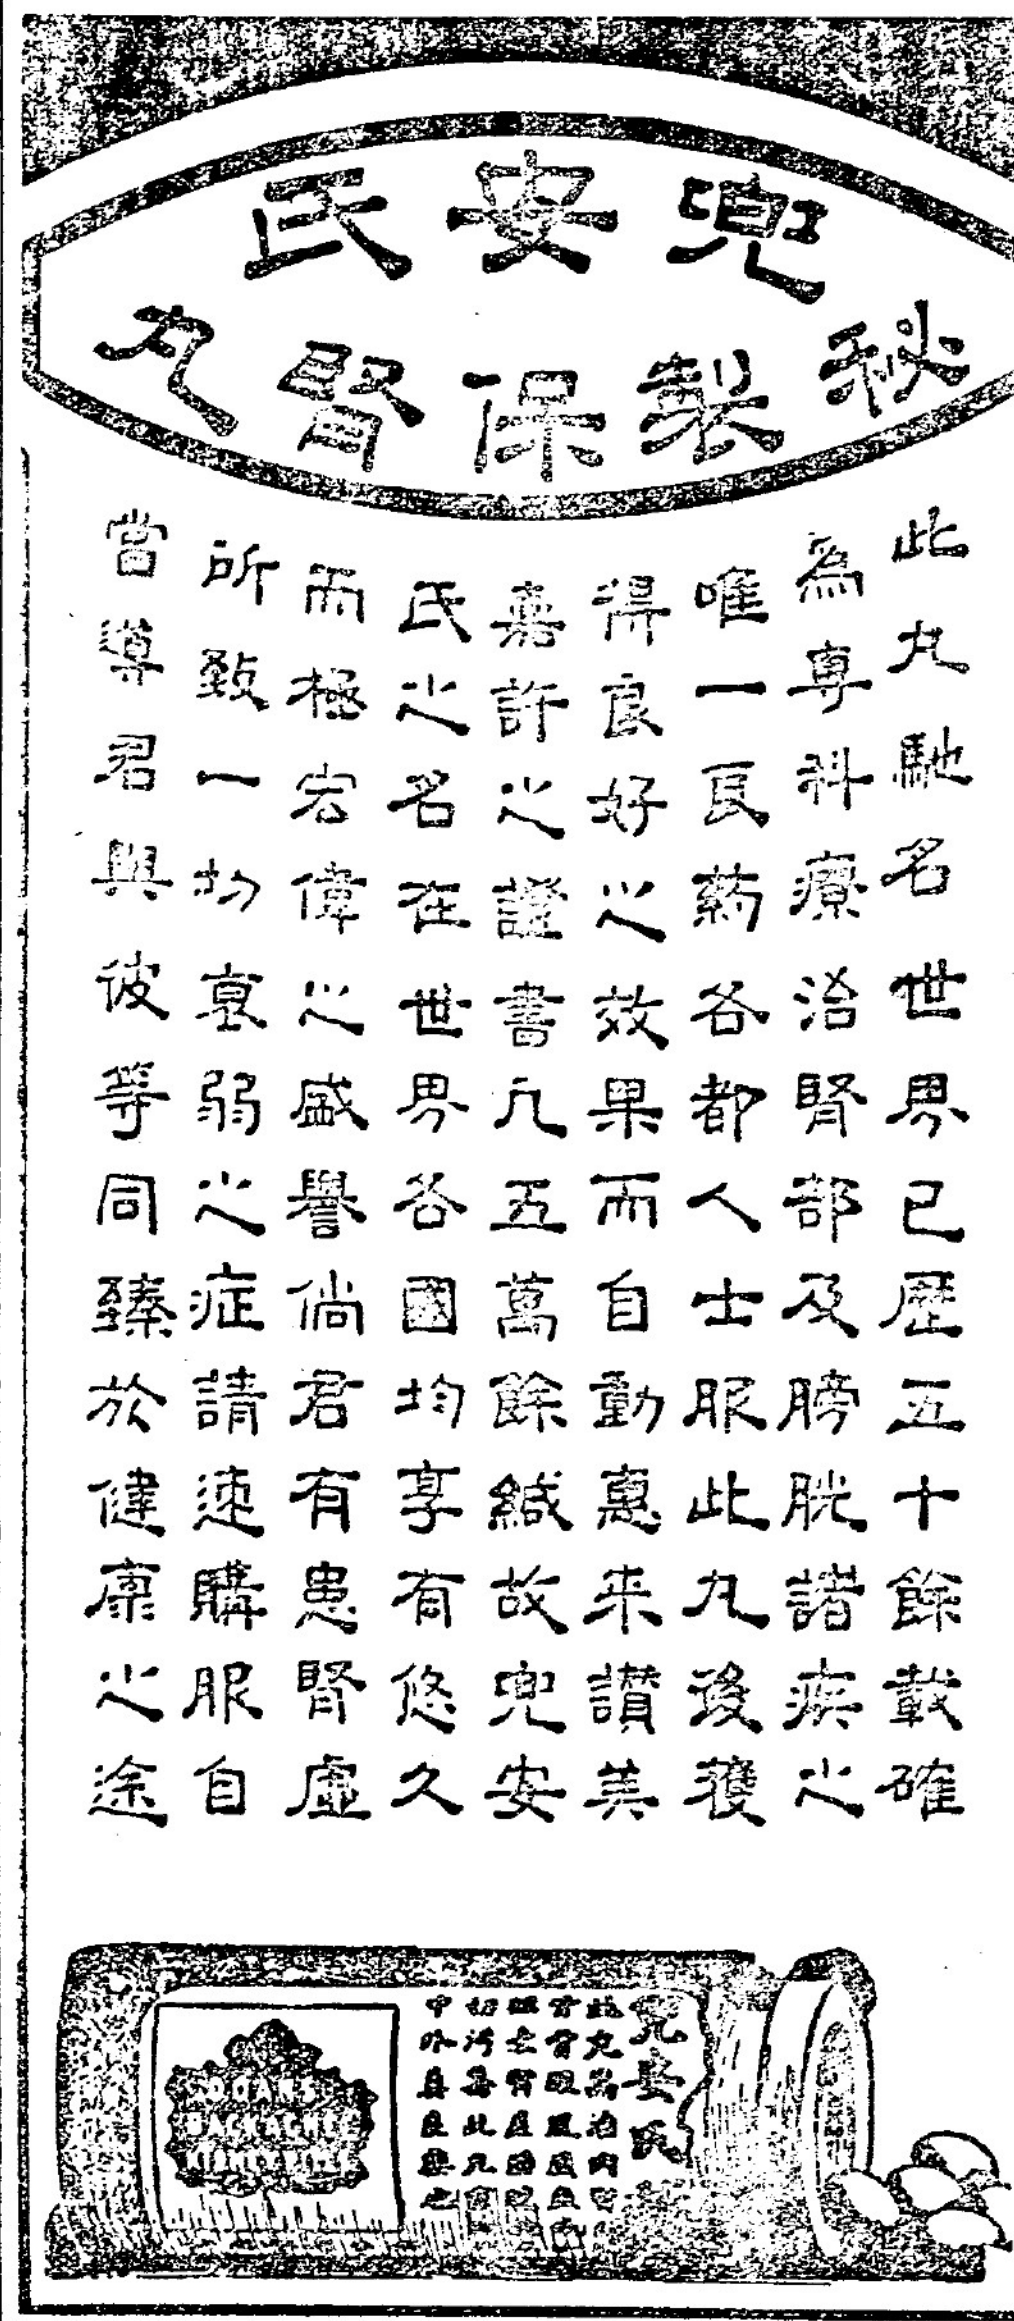 兜安氏
秘製保腎丸
此丸馳名世界已歷五十餘載確
為專科療治腎部及膀胱諸疾之
唯一良药各都人士服此丸後獲
得良好之效果而自動惠来讃美
嘉許之證書凡五萬餘緘故兜安
氏之名在世界各國均享有悠久
而極宏偉之盛譽倘君有患腎虛
所致一切衰弱之症請速購服自
當導君與彼等同臻於健康之途
兜安氏
DOAN'S
BACKACHE